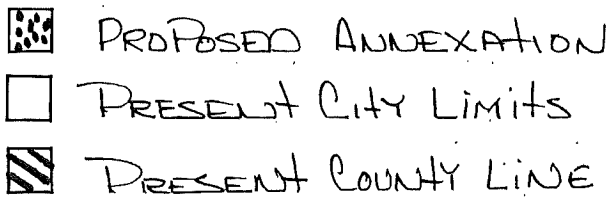 PROPOSED ANNEXATION
PRESENT CITY LIMITS
PRESENT COUNTY LINE